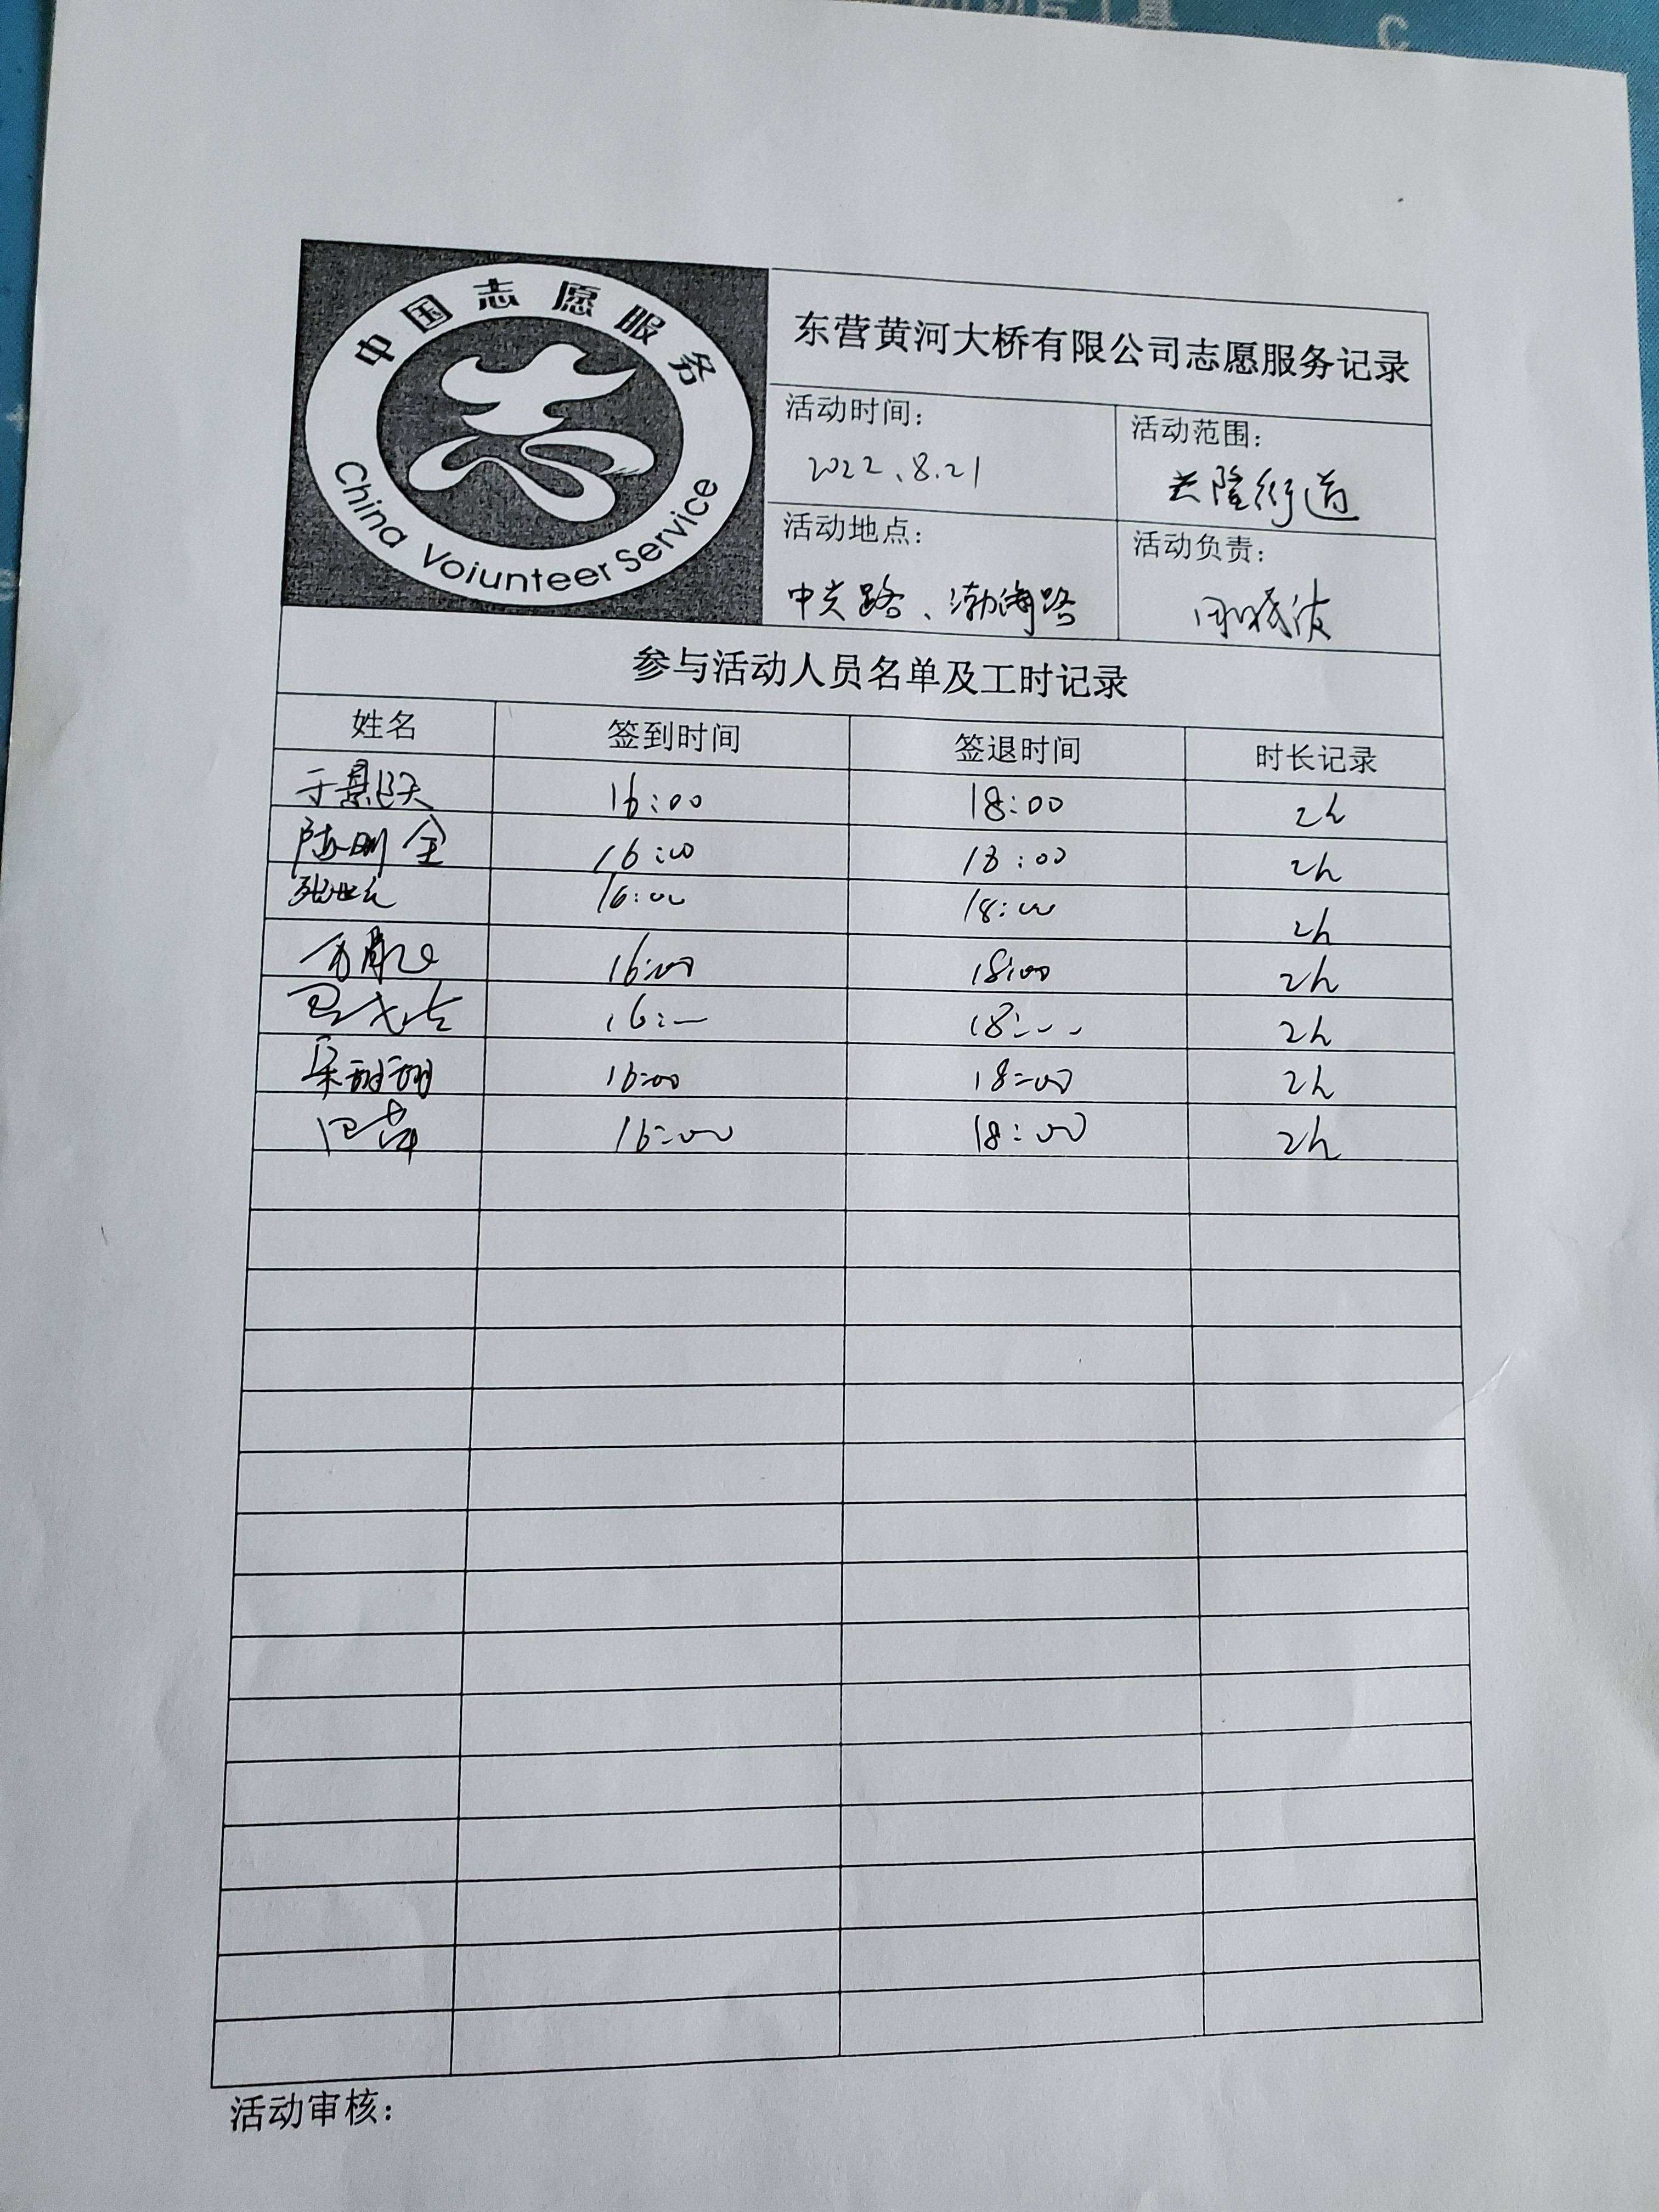 中国志愿服务
China Voiunteer Service
东营黄河大桥有限公司志愿服务记录
活动时间：
2022.8.21
活动范围：
兴隆街道
活动地点：
中兴路、渤海路
活动负责：
参与活动人员名单及工时记录
姓名 签到时间 签退时间 时长记录
16:00 18:00 2h
陈刚金 16:00 18:00 2h
16:00 18:00 2h
16:00 18:00 2h
16:00 18:00 2h
16:00 18:00 2h
16:00 18:00 2h
活动审核：